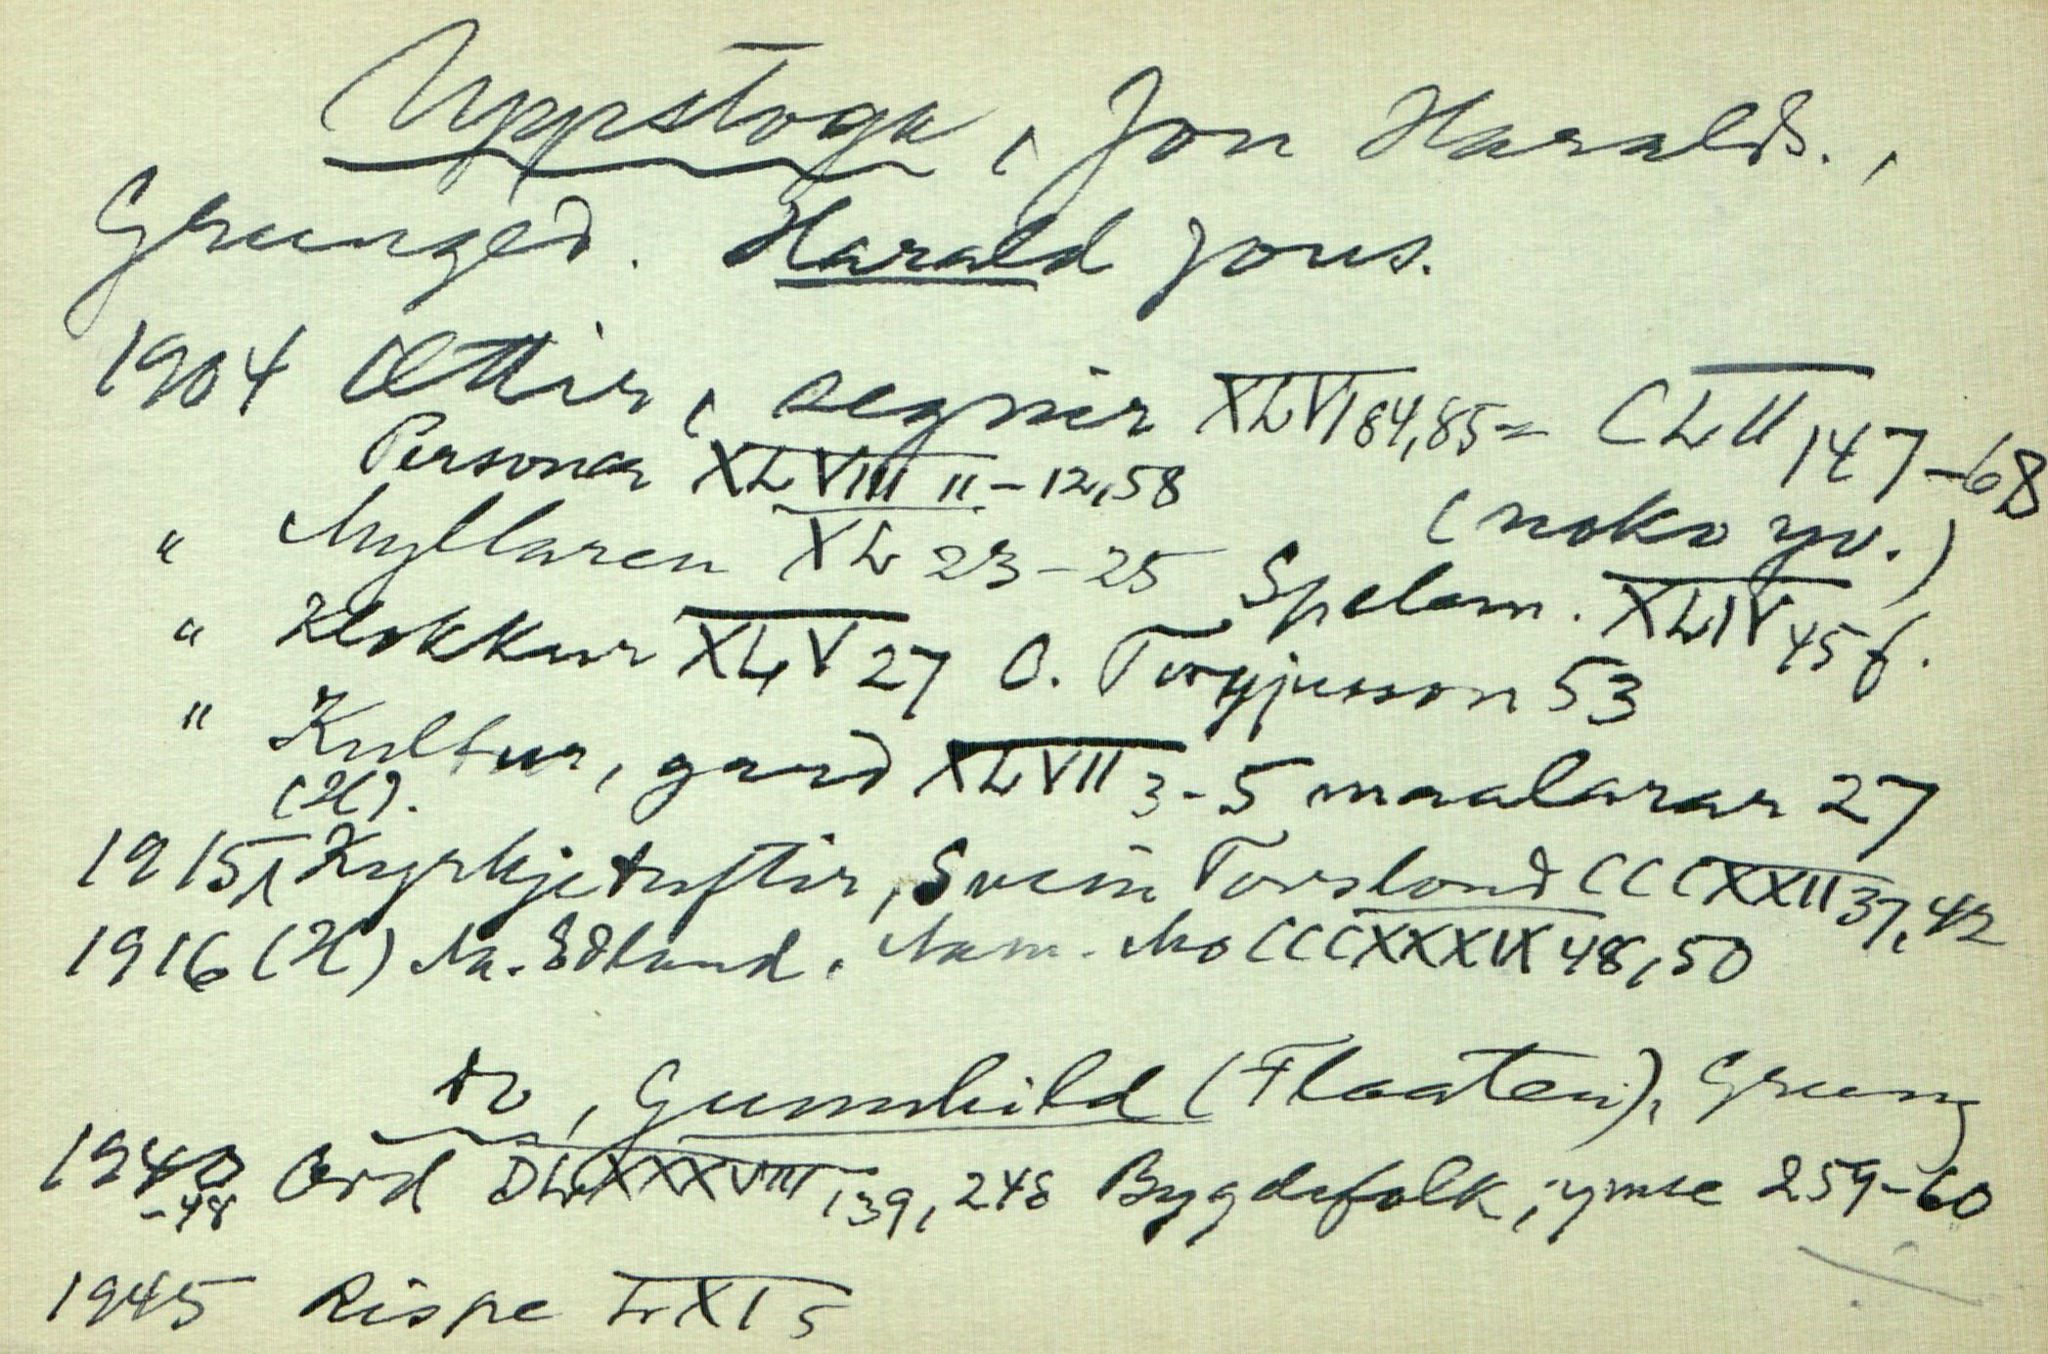 Uppstoga, Jon Haralds.,
Grunged. Harald Jons.
1904 Ættir, segnir XLVI 84,85 = CLII 147-68
Personar XLVIII 11-12,58 (noko yv.)
" Myllaren XL 23-25 Spelem. XLIV 45 f.
" Klokkur XLV 27 O. Torgjusson 53
" Kultur, gard XLVII 3-5 maalarar 27
(H).
1915, Kyrkjetuftir, Svein Torslond CCCXXII 37,42
1916 (H) Aa. Edland. Nam. Mo CCCXXXIX 48,50
do, Gunnhild (Flaaten), Grung
1940 Ord DLXXXVIII 139, 248 Bygdefolk, ymse 259-60
-48
1945 Rispe LXI 5